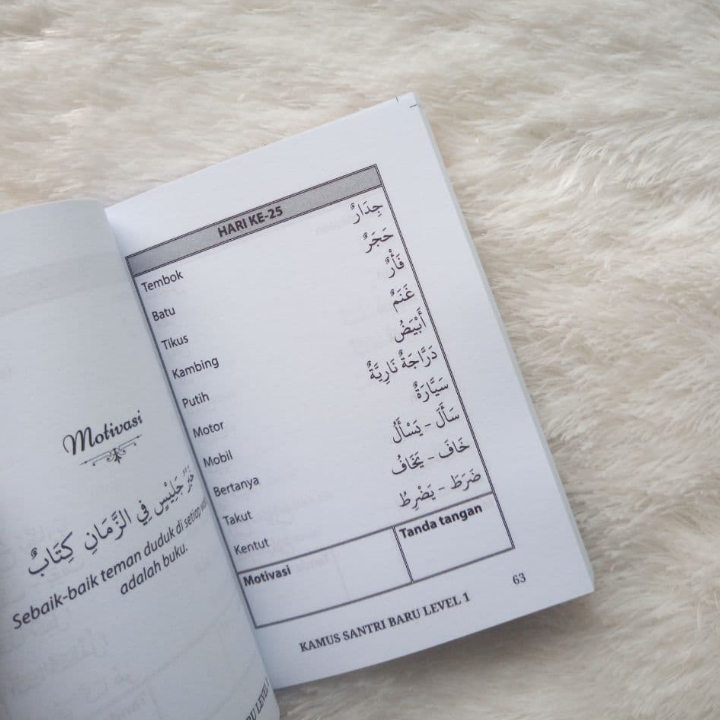 Motivasi
خَيْرُ جَلِيْسٍ فِي الزَّمَانِ كِتَابٌ
Sebaik-baik teman duduk di setiap
adalah buku.
HARI KE-25
Tembok جِدَارٌ
Batu حَجَرٌ
Tikus فَأْرٌ
Kambing غَنَمٌ
Putih أَبْيَضُ
Motor دَرَّاجَةٌ نَارِيَّةٌ
Mobil سَيَّارَةٌ
Bertanya سَأَلَ – يَسْأَلُ
Takut خَافَ – يَخَافُ
Kentut ضَرَطَ – يَضْرِطُ
Motivasi Tanda tangan
KAMUS SANTRI BARU LEVEL 1 63